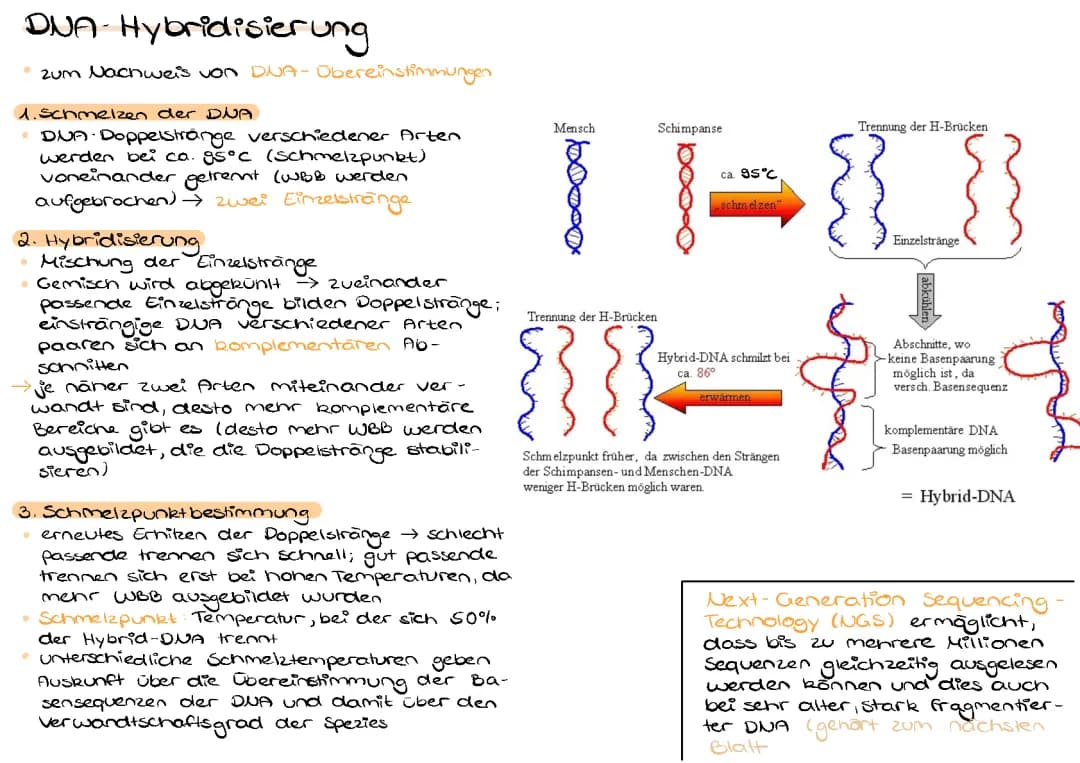 DNA-Hybridisierung
• zum Nachweis von DNA-Übereinstimmungen
1. Schmelzen der DNA
• DNA-Doppelstränge verschiedener Arten
werden bei ca. 95°C (Schmelzpunkt)
voneinander getrennt (WBB werden
aufgebrochen) → zwei Einzelstränge
2. Hybridisierung
• Mischung der Einzelstränge
• Gemisch wird abgekühlt → zueinander
passende Einzelstränge bilden Doppelstränge;
einsträngige DNA verschiedener Arten
paaren sich an komplementären Ab-
schnitten
→ je näher zwei Arten miteinander ver-
wandt sind, desto mehr komplementäre
Bereiche gibt es (desto mehr WBB werden
ausgebildet, die die Doppelstränge stabili-
sieren)
3. Schmelzpunktbestimmung
• erneutes Erhitzen der Doppelstränge → schlecht
passende trennen sich schnell; gut passende
trennen sich erst bei hohen Temperaturen, da
mehr WBB ausgebildet wurden
• Schmelzpunkt: Temperatur, bei der sich 50%
der Hybrid-DNA trennt
• unterschiedliche Schmelztemperaturen geben
Auskunft über die Übereinstimmung der Ba-
sensequenzen der DNA und damit über den
Verwandtschaftsgrad der Spezies
Mensch
Schimpanse
ca. 95°C
„schmelzen"
Trennung der H-Brücken
Einzelstränge
abkühlen
Abschnitte, wo
keine Basenpaarung
möglich ist, da
versch. Basensequenz
komplementäre DNA
Basenpaarung möglich
= Hybrid-DNA
Hybrid-DNA schmilzt bei
ca. 86°
erwärmen
Trennung der H-Brücken
Schmelzpunkt früher, da zwischen den Strängen
der Schimpansen- und Menschen-DNA
weniger H-Brücken möglich waren.
Next-Generation Sequencing-
Technology (NGS) ermöglicht,
dass bis zu mehrere Millionen
Sequenzen gleichzeitig ausgelesen
werden können und dies auch
bei sehr alter, stark fragmentier-
ter DNA (gehört zum nächsten
Blatt